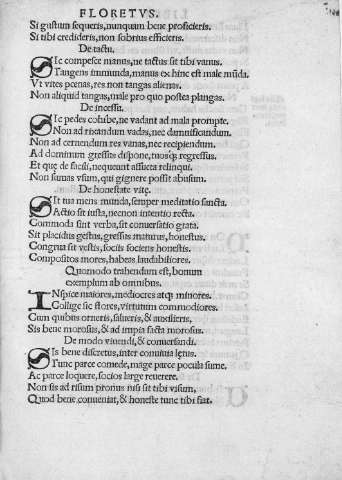 FLORETVS.
Si gustum sequeris, nunquam bene proficieris.
Si tibi credideris, non sobrius efficieris.
De tactu.
SIc compesce manus, ne tactus sit tibi vanus.
Tangens immunda, manus ex hinc est male mũda.
Vt vites pœnas, res non tangas alienas.
Non aliquid tangas, male pro quo postea plangas.
De incessu.
SIc pedes cohibe, ne vadant ad mala prompte.
Non ad rixandum vadas, nec damnificandum.
Non ad cernendum res vanas, nec recipiendum.
Ad dominum gressus dispone, tuosq; regressus.
Et quę de facili, nequeunt assueta relinqui.
Non sumas vsum, qui gignere possit abusum.
De honestate vitę.
SIt tua mens munda, semper meditatio sancta.
Actio sit iusta, necnon intentio recta.
Commoda sint verba, sit conuersatio grata.
Sit placidus gestus, gressus maturus, honestus.
Congrua sit vestis, sociis sociens honestis.
Compositos mores, habeas laudabiliores.
Quomodo trahendum est, bonum
exemplum ab omnibus.
INspice maiores, mediocres atq; minores.
Collige sic flores, virtutum commodiores.
Cum quibus orneris, salueris, & auxilieris.
Sis bene morosus, & ad impia facta morosus.
De modo viuendi, & conuersandi.
SIs bene discretus, inter conuiuia lętus.
Tunc parce comede, mage parce pocula sume.
Ac parce loquere, socios large reuerere.
Non sis ad risum pronus nisi sit tibi visum,
Quod bene conueniat, & honeste tunc tibi fiat.